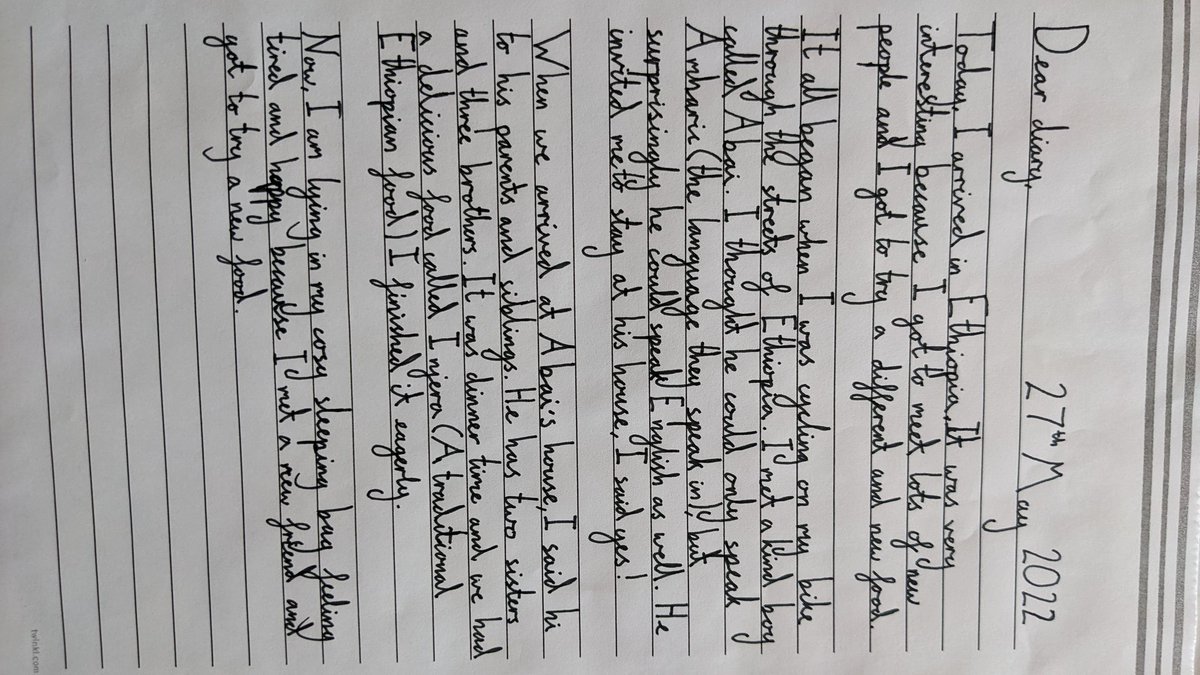 27th May 2022
Dear diary,
Today, I arrived in Ethiopia, It was very
interesting because I got to meet lots of new
people and I got to try a different and new food.
It all began when I was cycling on my bike
through the streets of Ethiopia. I met a kind boy
called Abai. I thought he could only speak
Amharic (the language they speak in), but
surprisingly he could speak English as well. He
invited me to stay at his house, I said yes!
When we arrived at Abai's house, I said hi
to his parents and siblings. He has two sisters
and three brothers. It was dinner time and we had
a delicious food called Injera (A traditional
Ethiopian food) I finished it eagerly.
Now, I am lying in my cosy sleeping bag feeling
tired and happy because I met a new friend and
got to try a new food.
twinkl.com